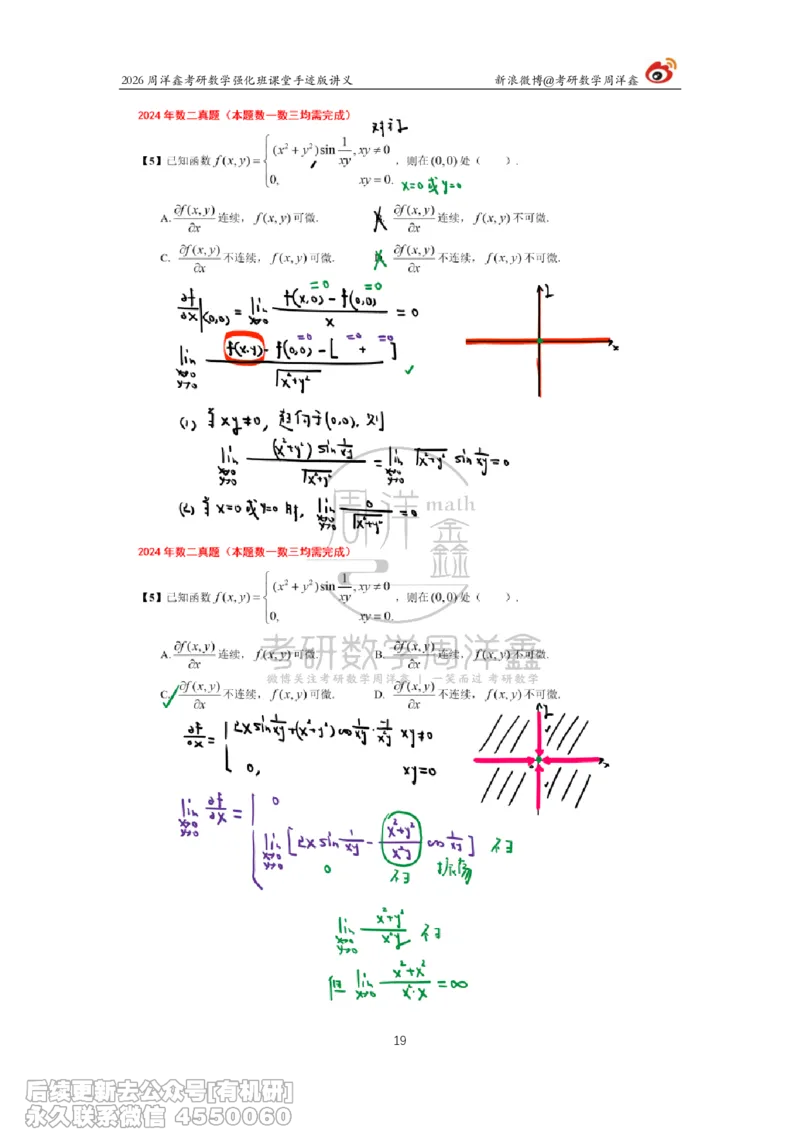 2026 周洋鑫考研数学强化班课堂手迹版讲义 新浪微博@考研数学周洋鑫
2024 年数二真题（本题数一数三均需完成）
【5】已知函数 f(x,y) = { (x² + y²) sin 1/xy , xy ≠ 0
0, xy = 0. ，则在 (0,0) 处（ ）.
x=0 或 y=0
A. ∂f(x,y)/∂x 连续，f(x,y) 可微. ∂f(x,y)/∂x 连续，f(x,y) 不可微.
C. ∂f(x,y)/∂x 不连续，f(x,y) 可微. ∂f(x,y)/∂x 不连续，f(x,y) 不可微.
=0 =0
∂f/∂x|(0,0) = lim x→0 f(x,0) - f(0,0) / x = 0
=0 =0 =0
lim x→0 y→0 f(x,y) - f(0,0) - [ + ] / √x²+y²
(1) 当 xy≠0, 趋向于(0,0), 则
lim x→0 y→0 (x²+y²) sin 1/xy / √x²+y² = lim x→0 y→0 √x²+y² sin 1/xy = 0
(2) 当 x=0 或 y=0 时, lim x→0 y→0 0 / √x²+y² = 0
周洋 math
鑫
2024 年数二真题（本题数一数三均需完成）
【5】已知函数 f(x,y) = { (x² + y²) sin 1/xy , xy ≠ 0
0, xy = 0. ，则在 (0,0) 处（ ）.
考研数学周洋鑫
A. ∂f(x,y)/∂x 连续，f(x,y) 可微. B. ∂f(x,y)/∂x 连续，f(x,y) 不可微.
微博关注考研数学周洋鑫 | 一笑而过 考研数学
C. ∂f(x,y)/∂x 不连续，f(x,y) 可微. D. ∂f(x,y)/∂x 不连续，f(x,y) 不可微.
∂f/∂x = { 2x sin 1/xy + (x²+y²) cos 1/xy · -1/x²y xy≠0
0, xy=0
lim x→0 y→0 ∂f/∂x = { 0
lim x→0 y→0 [2x sin 1/xy - x²+y²/x²y cos 1/xy] 不∃
0 不∃ 振荡
lim x→0 y→0 x²+y²/x²y 不∃
但 lim x→0 x²+x²/x²·x = ∞
19
后续更新去公众号[有机研]
永久联系微信 4550060